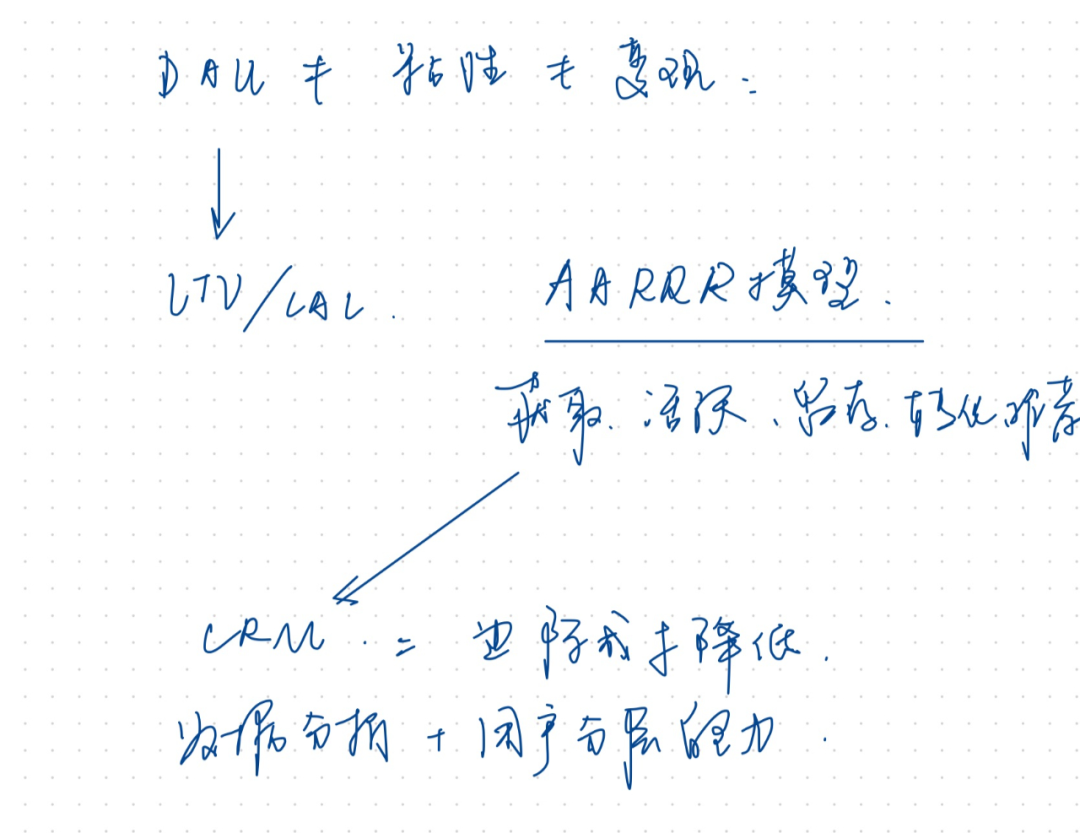 DAU ≠ 粘性 ≠ 变现:
LTV/CAC.
AARRR模型.
获取、活跃、留存、转化 推荐
CRM. = 边际成本降低.
数据分析 + 用户分层能力.